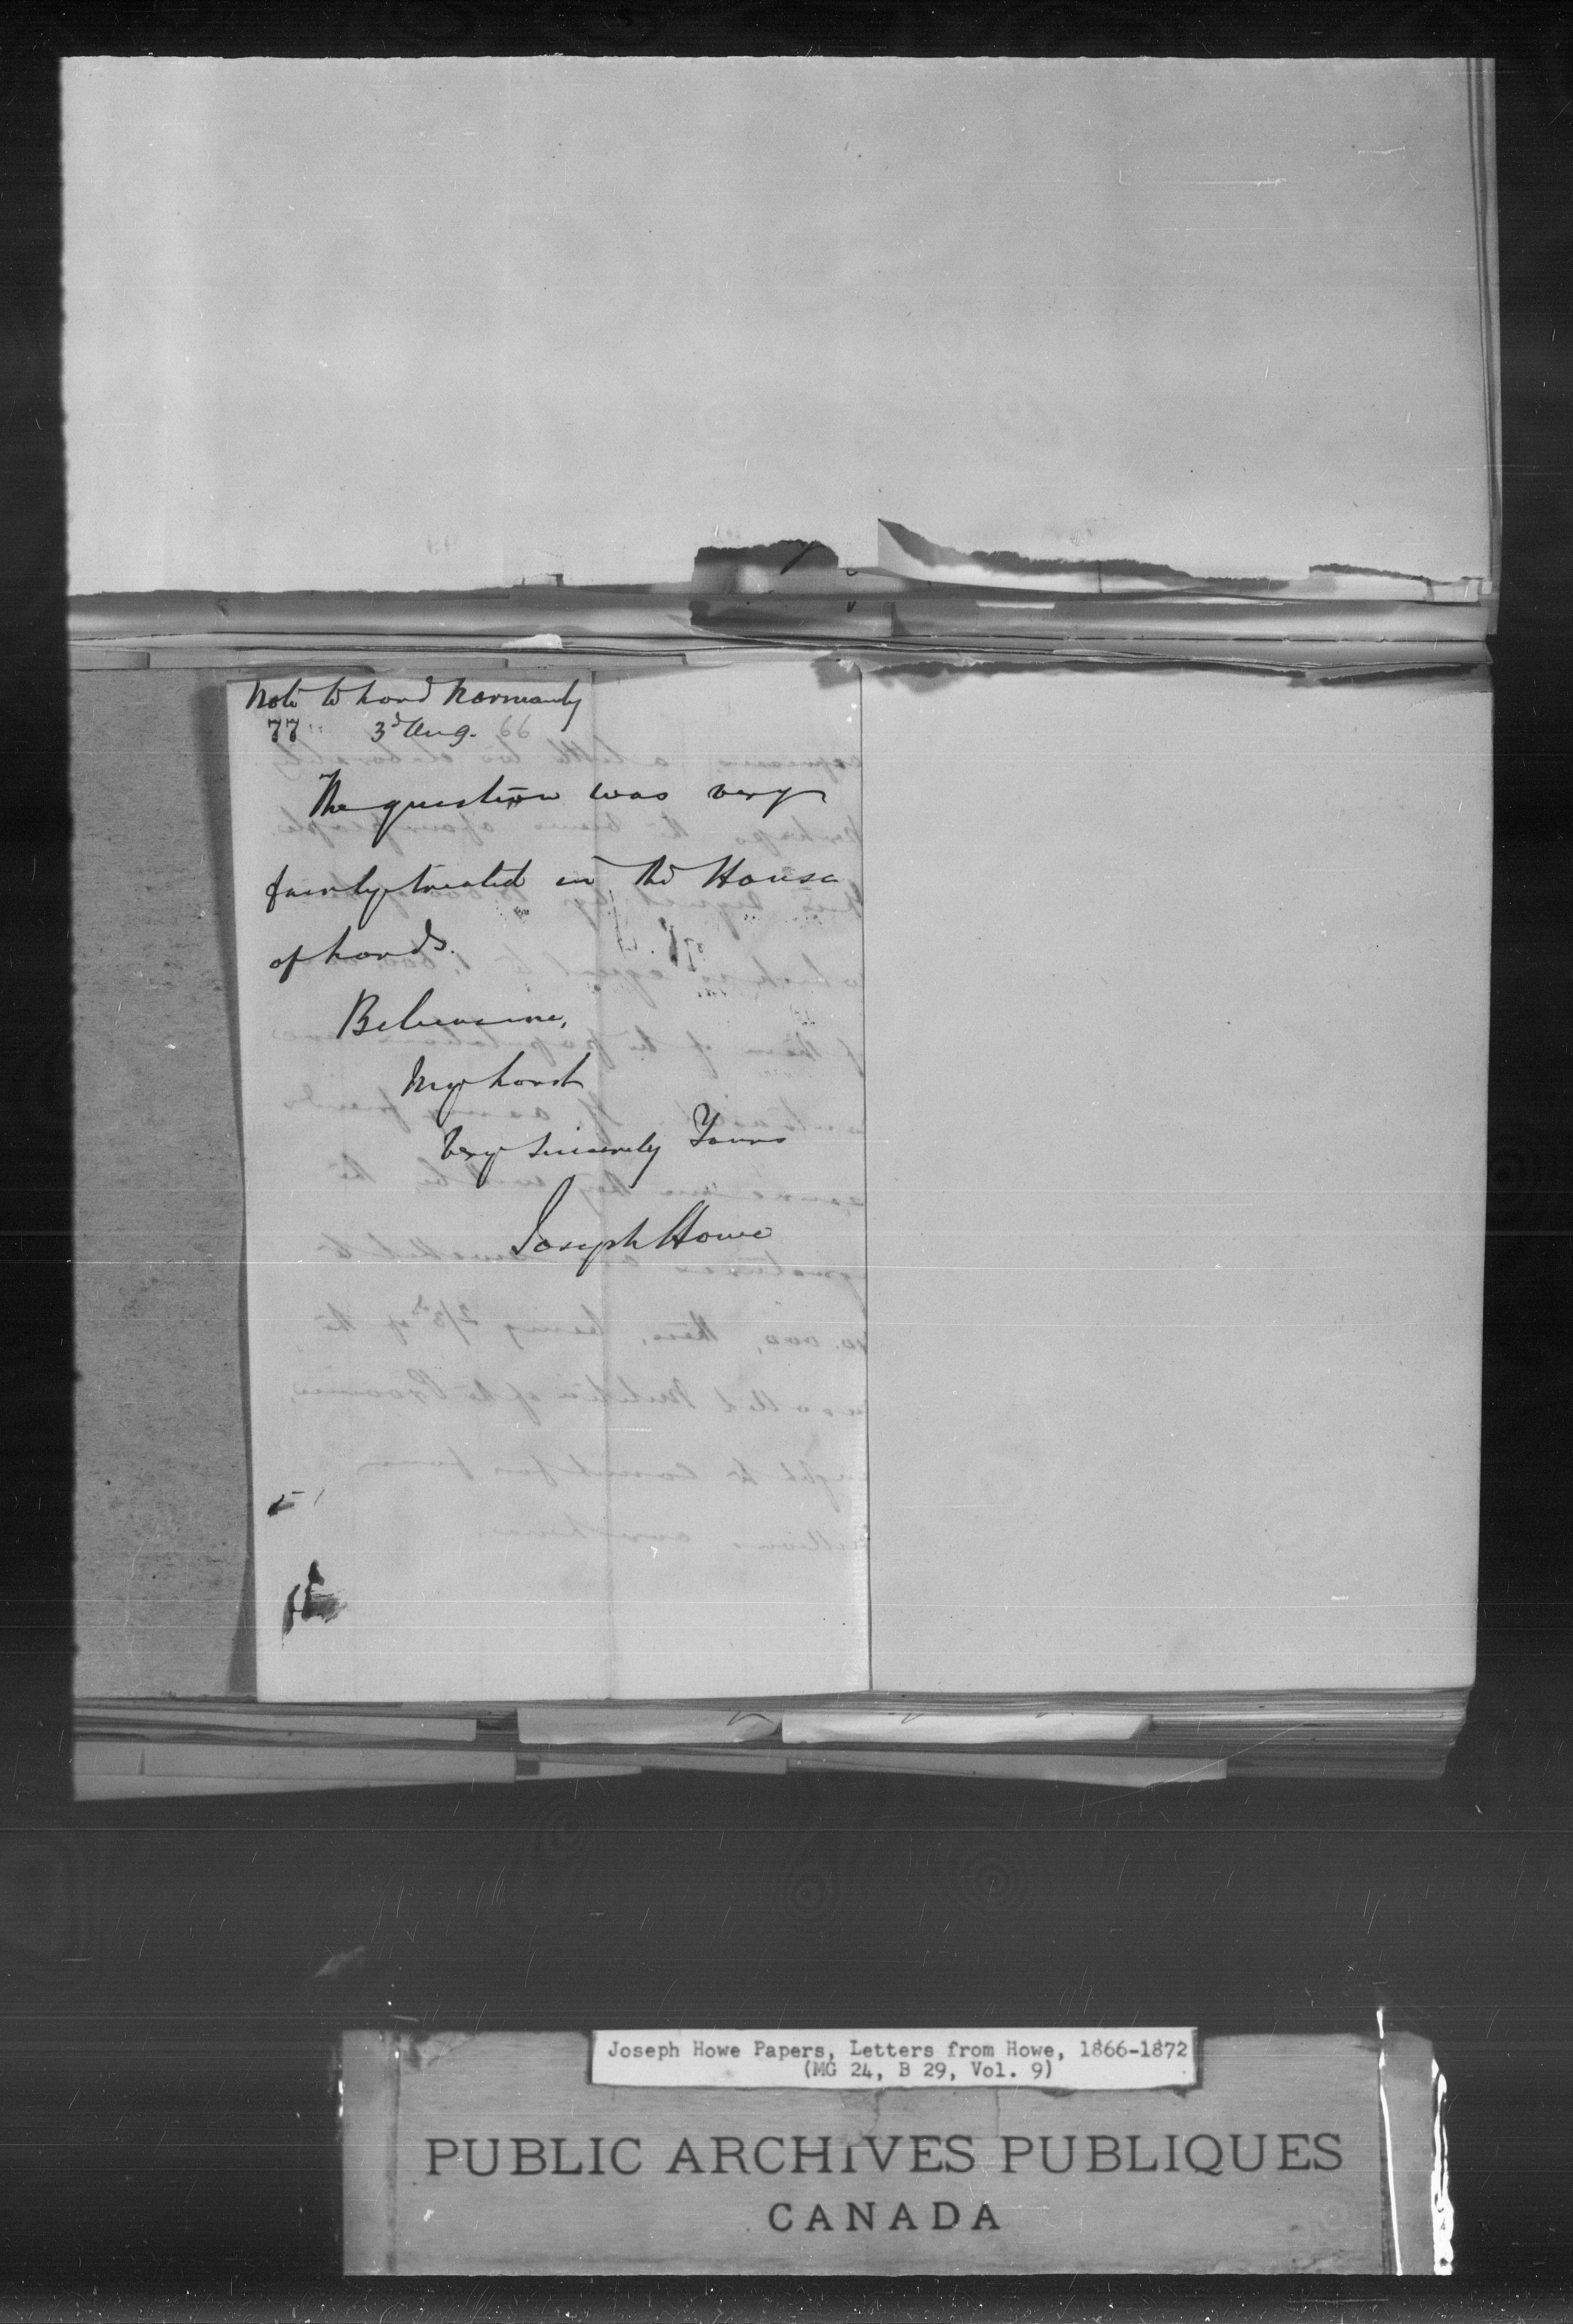 Note to Lord Normanby
77 3d Aug. 66
The question was very
fairly treated in the House
of Lords.
Believe me,
My Lord
Very Sincerely Yours
Joseph Howe
Joseph Howe Papers, Letters from Howe, 1866-1872
(MG 24, B 29, Vol. 9)
PUBLIC ARCHIVES PUBLIQUES
CANADA